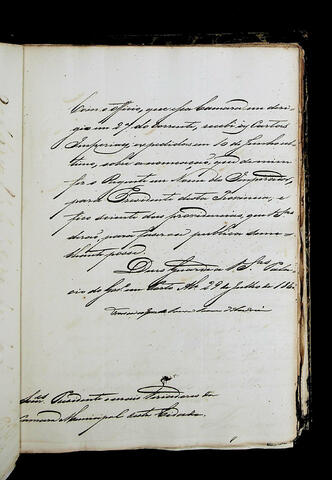 Com o officio, que essa Camara me diri
gio em 27 do corrente, recebi as Cartas
Imperiaes, expedidas em 10 de Junho ul
timo, sobre a nomeação, que de mim
fez o Regente em Nome do Imperador,
para Presidente desta Provincia, e
fico sciente das providencias, que V.Sas
derão, para fazer-se publica a mi-
nha posse.
Deus Guarde a V. Sas Pala
cio do Govo em Porto Al. 29 de Julho de
Snres Presidente e mais Vereadores da
Camara Municipal desta Cidade.